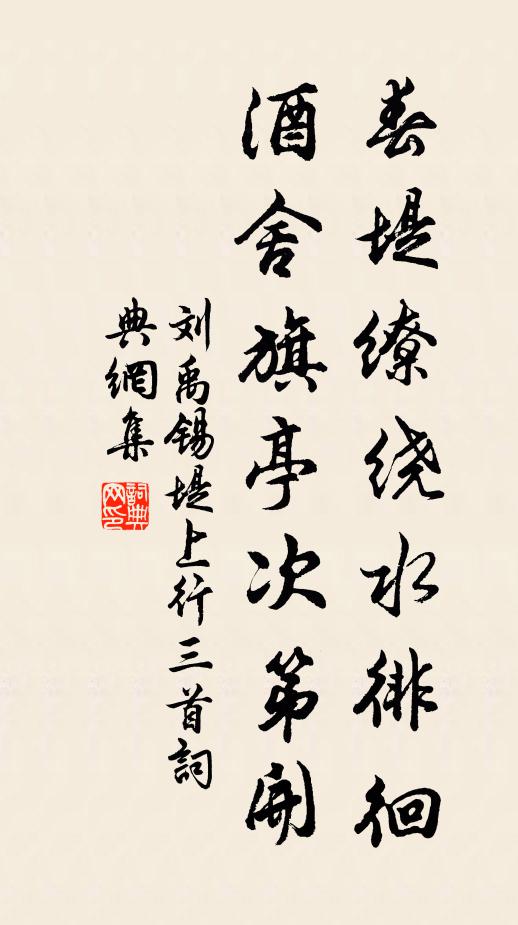 春堤缭绕水徘徊
酒舍旗亭次第開
刘禹锡堤上行三首詞
典網集
詞典
网印